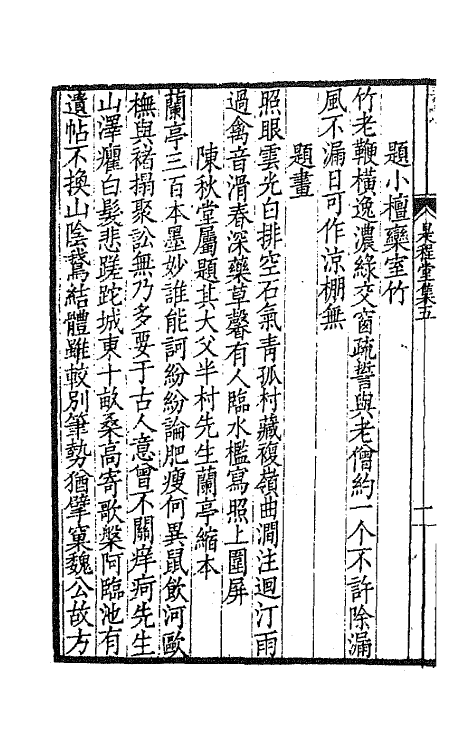 題小檀欒室竹
竹老鞭橫逸濃綠交窗疏誓與老僧約一个不許除漏
風不漏日可作涼棚無
題畫
照眼雲光白排空石氣青孤村藏複嶺曲澗注迴汀雨
過禽音滑春深藥草馨有人臨水檻寫照上圍屏
陳秋堂屬題其大父半村先生蘭亭縮本
蘭亭三百本墨妙誰能訶紛紛論肥瘦何異鼠飲河歐
橅與褚搨聚訟無乃多要于古人意曾不關痒疴先生
山澤癯白髮悲蹉跎城東十畝桑高寄歌槃阿臨池有
遺帖不換山陰鵞結體雖較別筆勢猶擘窠魏公故方
冬程堂集五